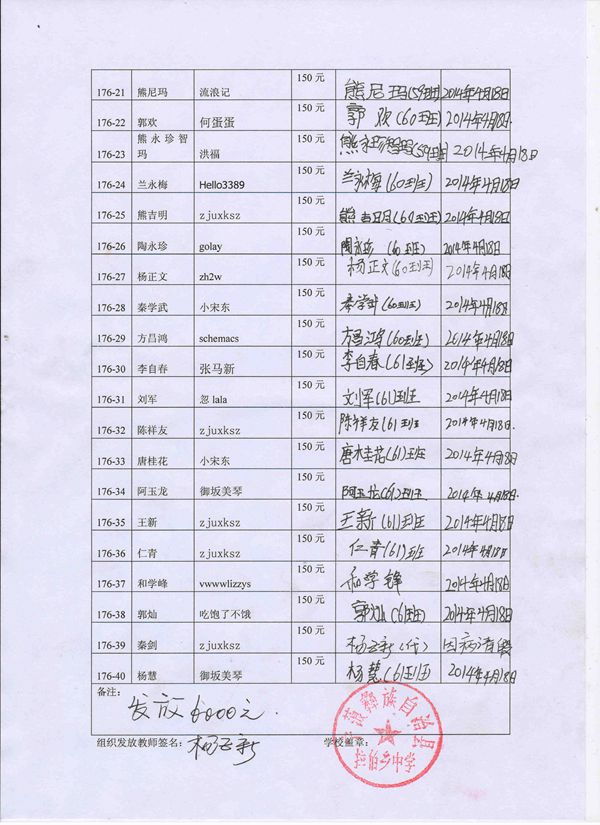 176-21 熊尼玛 流浪记 150 元 熊尼玛(59班) 2014年4月18日
176-22 郭欢 何蛋蛋 150 元 郭欢(60班) 2014年4月18日.
176-23 熊永珍智玛 洪福 150 元 熊永珍智玛(59班) 2014年4月18日
176-24 兰永梅 Hello3389 150 元 兰永梅(60班) 2014年4月18日
176-25 熊吉明 zjuxksz 150 元 熊吉明(60班) 2014年4月18日
176-26 陶永珍 golay 150 元 陶永珍(60班) 2014年4月18日
176-27 杨正文 zh2w 150 元 杨正文(60班) 2014年4月18日
176-28 秦学武 小宋东 150 元 秦学武(60班) 2014年4月18日
176-29 方昌鸿 schemacs 150 元 方昌鸿(60班) 2014年4月18日
176-30 李自春 张马新 150 元 李自春(61班) 2014年4月18日
176-31 刘军 忽 lala 150 元 刘军(61)班 2014年4月18日
176-32 陈祥友 zjuxksz 150 元 陈祥友(61班 2014年4月18日.
176-33 唐桂花 小宋东 150 元 唐桂花(61)班 2014年4月18日
176-34 阿玉龙 御坂美琴 150 元 阿玉龙(61)班 2014年4月18日
176-35 王新 zjuxksz 150 元 王新(61)班 2014年4月18日
176-36 仁青 zjuxksz 150 元 仁青(61)班 2014年4月18日
176-37 和学峰 vwwwlizzys 150 元 和学锋 2014年4月18日
176-38 郭灿 吃饱了不饿 150 元 郭灿(61班) 2014年4月18日
176-39 秦剑 zjuxksz 150 元 (代) 因病请假
176-40 杨慧 御坂美琴 150 元 杨慧(61班) 2014年4月18日
备注:
发放6000元.
组织发放教师签名: 学校盖章:
蒗彝族自治县
拉伯乡中学